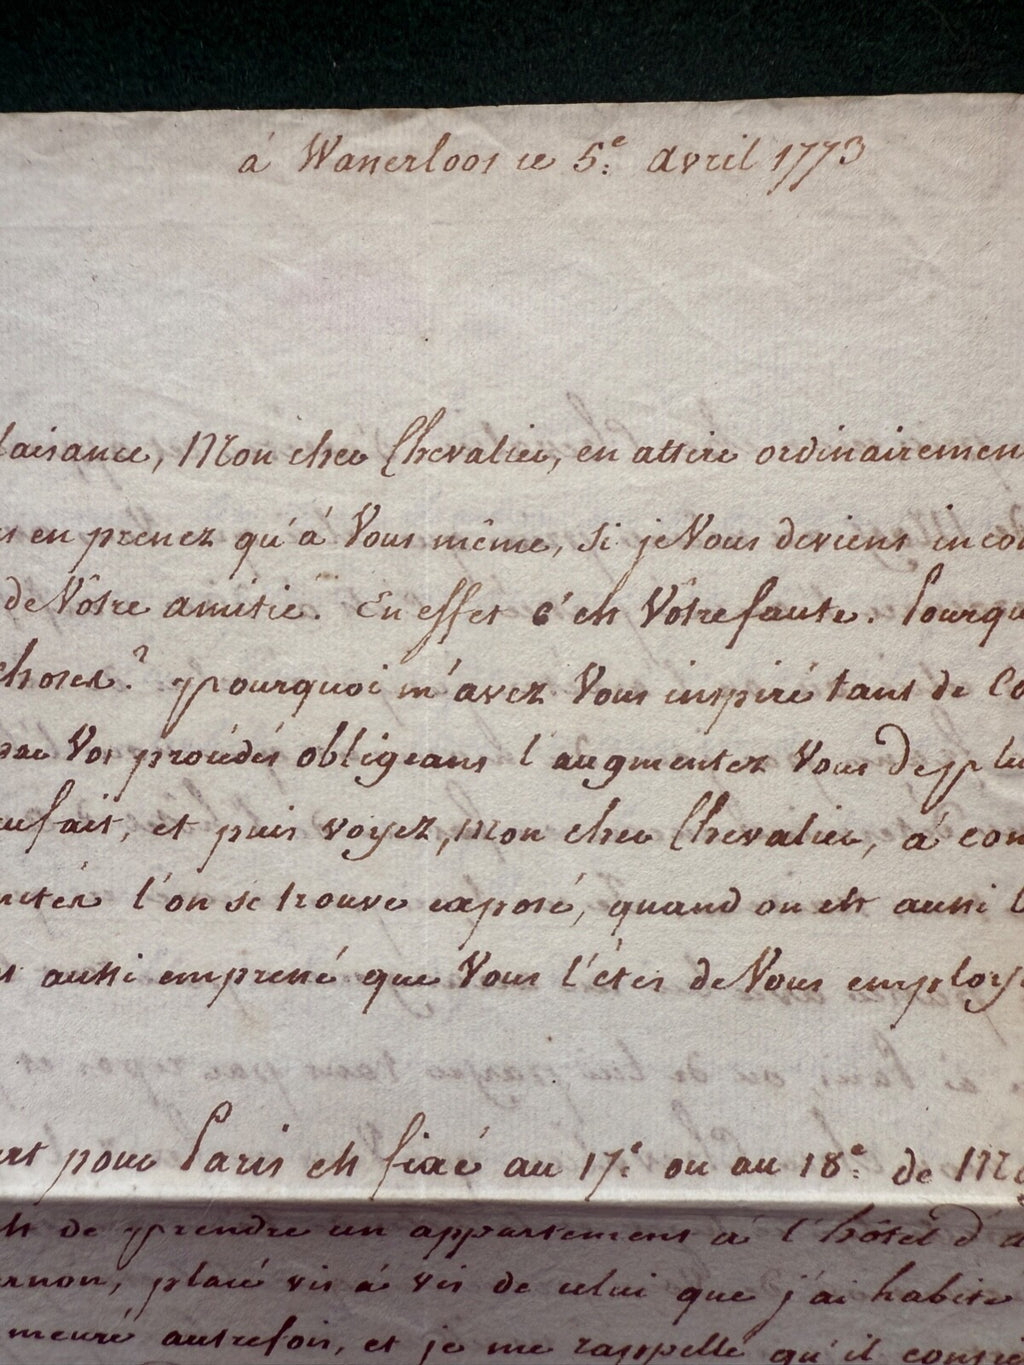 á Wanerloos ce 5.e avril 1773
laisance, Mon cher Chevalier, en attire ordinairemen
s en prenez qu'á Vous même, si je Vous deviens incom
de Vôtre amitié. En effet c'est Vôtre faute. Pourqu
choses? pourquoi m'avez Vous inspiré tant de Co
par Vos procédés obligeans l'augmentez Vous de plu
fait, et puis voyez, Mon cher Chevalier, á com
l'on se trouve exposé, quand on est aussi
aussi empressé que Vous l'étes de Vous employe
pour Paris est fixé au 17.e ou au 18.e de
de prendre un appartement á l'hôtel d'a
rnon, placé vis á vis de celui que j'ai habité
meuré autrefois, et je me rappelle qu'il